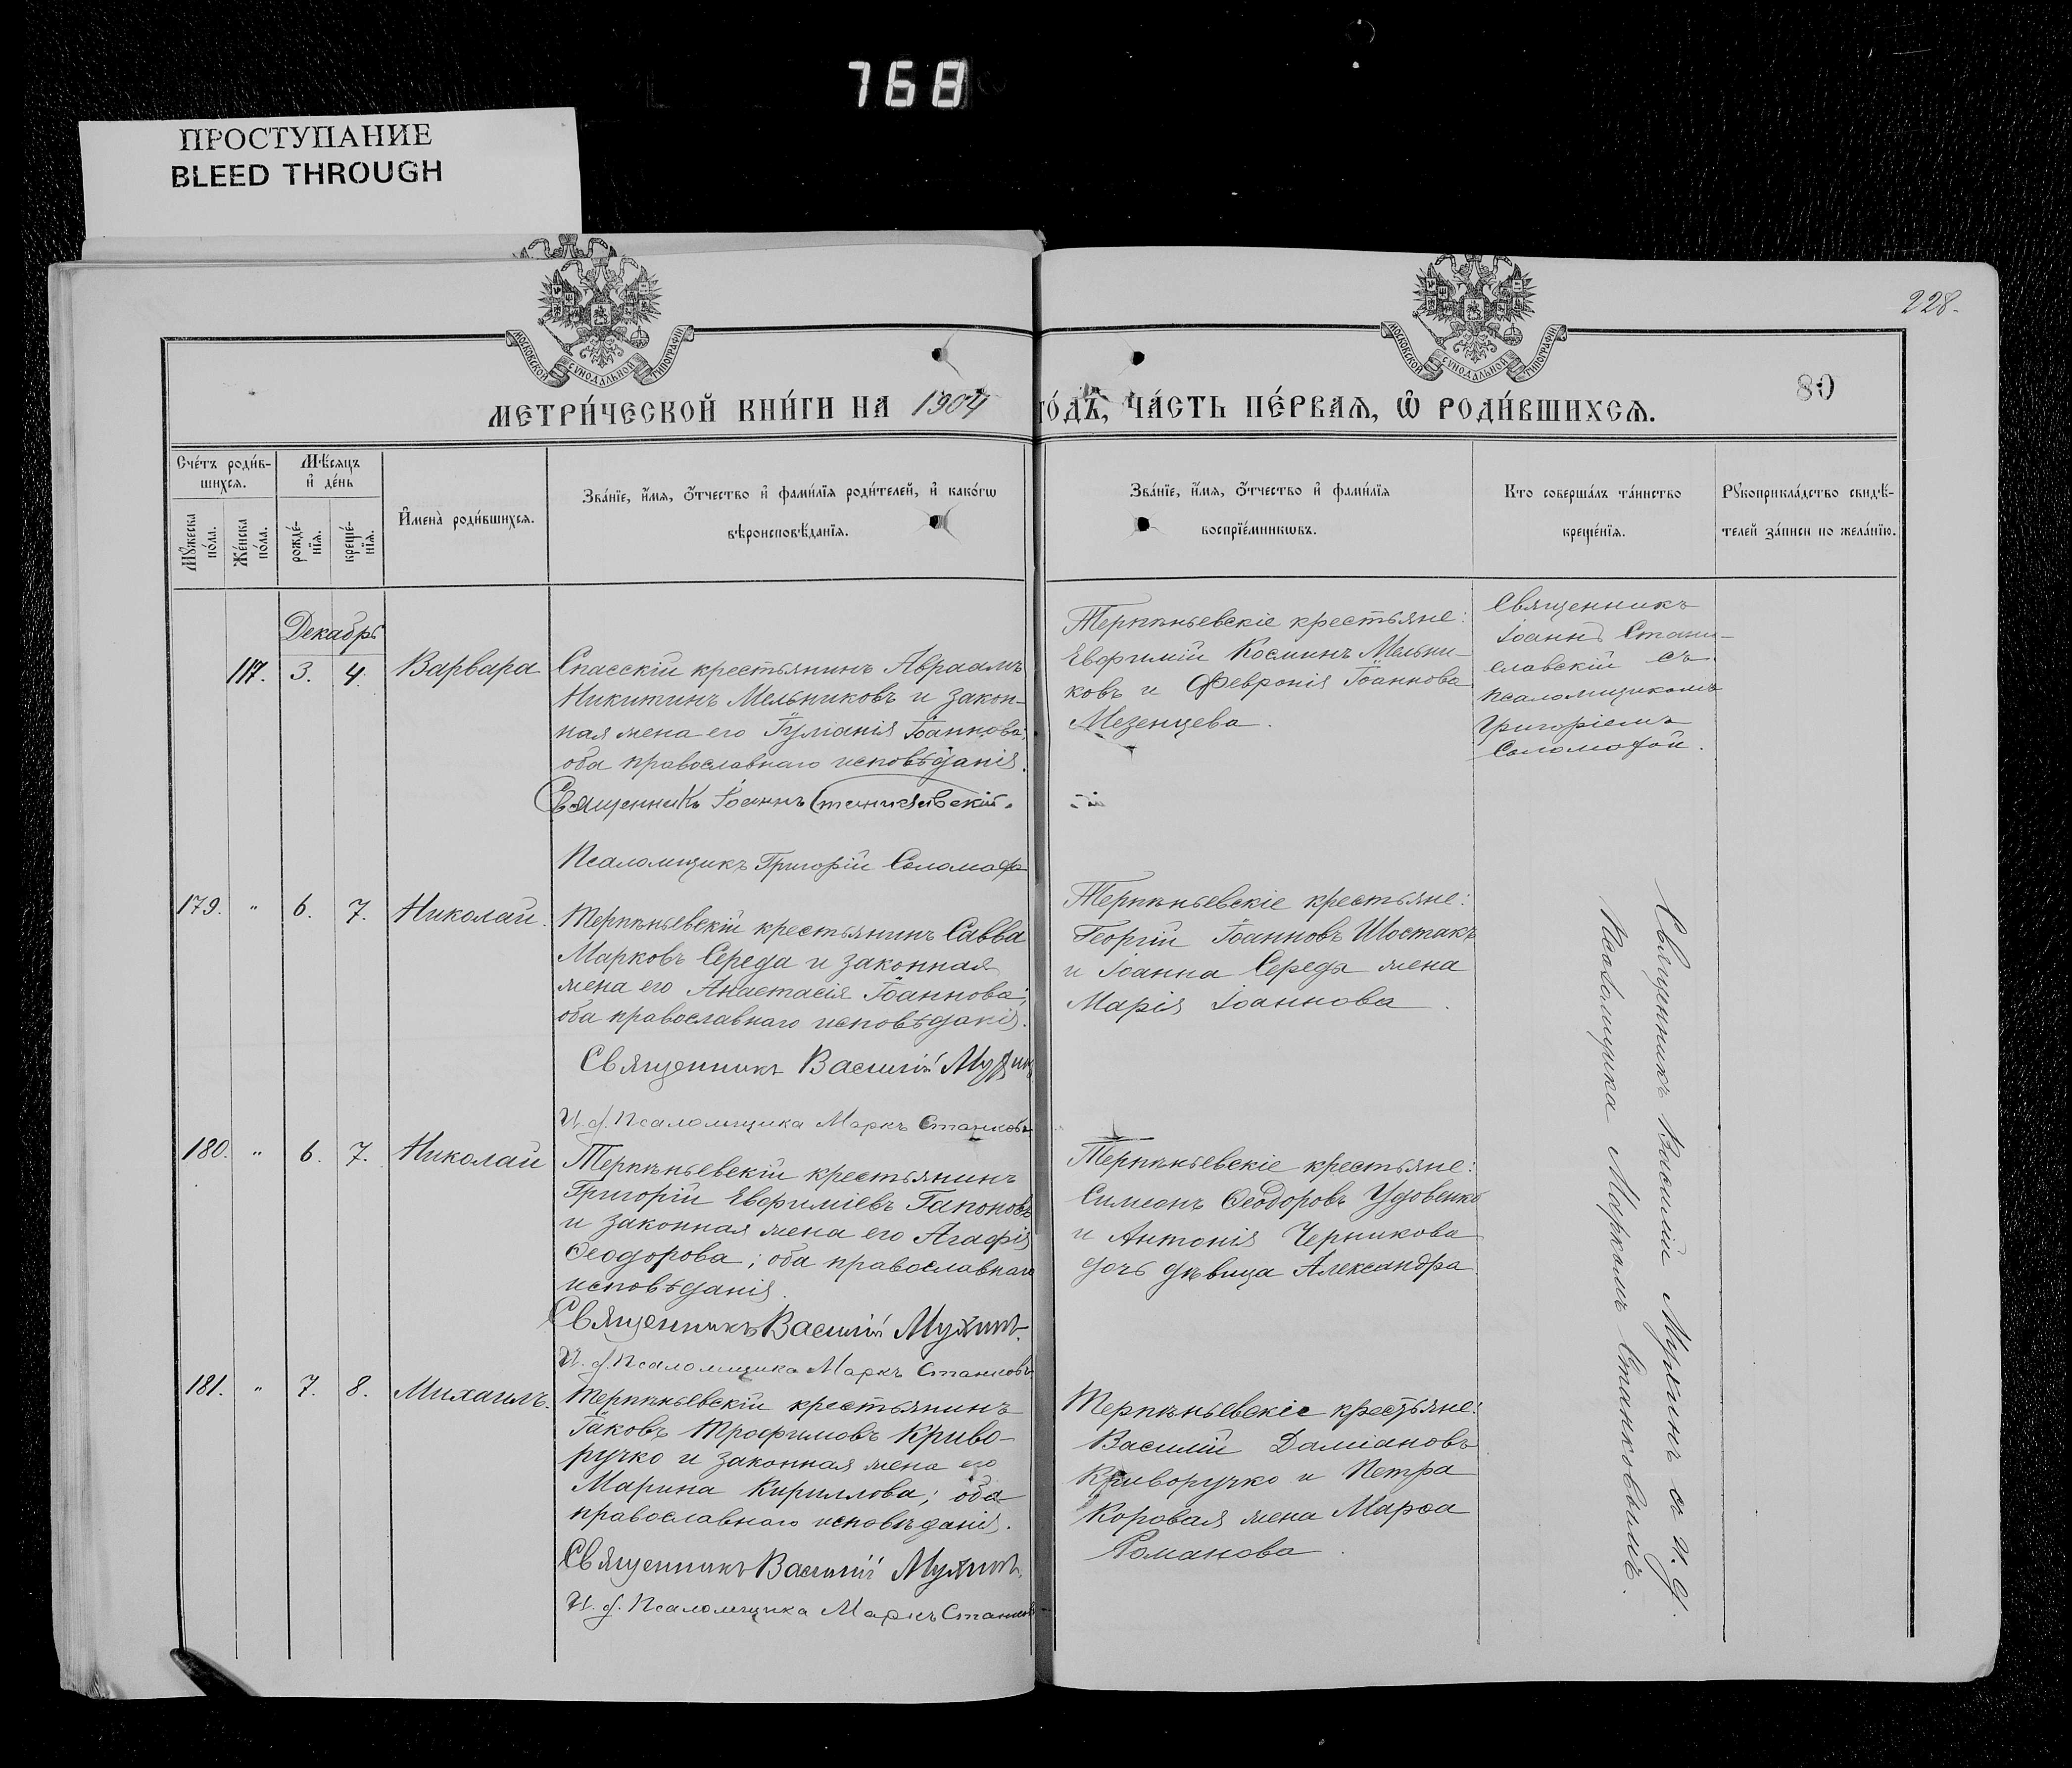 768
ПРОСТУПАНИЕ
BLEED THROUGH
228.
МОСКОВСКОЙ СѴНОДАЛЬНОЙ ТИПОГРАФИИ
МОСКОВСКОЙ СѴНОДАЛЬНОЙ ТИПОГРАФИИ
80
МЕТРИ́ЧЕСКОЙ КНИ́ГИ НА 1904 ГО́ДЪ, ЧА́СТЬ ПЕ́РВАЯ, Ѽ РОДИ́ВШИХСЯ.
Сче́тъ роди́в-
шихся.
Мꙋ́жеска по́ла.
Же́нска по́ла.
Мѣ́сяцъ
и҆ де́нь
рожде́-
нїя.
креще́-
нїя.
И҆мена̀ роди́вшихся.
Зва́нїе, и҆́мя, ѻ҆́тчество и҆ фами́лїя роди́телей, и҆ како́гѡ
вѣроисповѣ́данїя.
Зва́нїе, и҆́мя, ѻ҆́тчество и҆ фами́лїя
воспрїе́мникѡвъ.
Кто соверша́лъ та́инство
креще́нїя.
Рꙋкоприкла́дство свидѣ́-
телей за́писи по жела́нїю.
Декабрь
117. 3. 4. Варвара
Спасскій крестьянинъ Авраамъ
Никитинъ Мельниковъ и закон-
ная жена его Іуліанія Іоаннова;
оба православнаго исповѣданія.
Священникъ Іоаннъ Станиславскій.
Псаломщикъ Григорій Соломаха
Терпѣньевскіе крестьяне:
Евфимій Косминъ Мельни-
ковъ и Февронія Іоаннова
Мезенцева.
Священникъ
Іоаннъ Стани-
славскій съ
псаломщикомъ
Григоріемъ
Соломахой.
179. " 6. 7. Николай.
Терпѣньевскій крестьянинъ Савва
Марковъ Середа и законная
жена его Анастасія Іоаннова;
оба православнаго исповѣданія.
Священникъ Василій Мухинъ
И. д. Псаломщика Маркъ Станковъ
Терпѣньевскіе крестьяне:
Георгій Іоанновъ Шостакъ
и Іоанна Середы жена
Марія Іоаннова.
180. " 6. 7. Николай
Терпѣньевскій крестьянинъ
Григорій Евфиміевъ Гапоновъ
и законная жена его Агафія
Ѳеодорова; оба православнаго
исповѣданія.
Священникъ Василій Мухинъ.
И. д. Псаломщика Маркъ Станковъ
Терпѣньевскіе крестьяне:
Симеонъ Ѳеодоровъ Удовенко
и Антонія Черникова
дочь дѣвица Александра
181. " 7. 8. Михаилъ.
Терпѣньевскій крестьянинъ
Іаковъ Трофимовъ Криво-
ручко и законная жена его
Марина Кириллова; оба
православнаго исповѣданія.
Священникъ Василій Мухинъ.
И. д. Псаломщика Маркъ Станковъ
Терпѣньевскіе крестьяне:
Василій Даміановъ
Криворучко и Петра
Коровая жена Марѳа
Романова.
Священникъ Василій Мухинъ съ и. д.
Псаломщика Маркомъ Станковымъ.